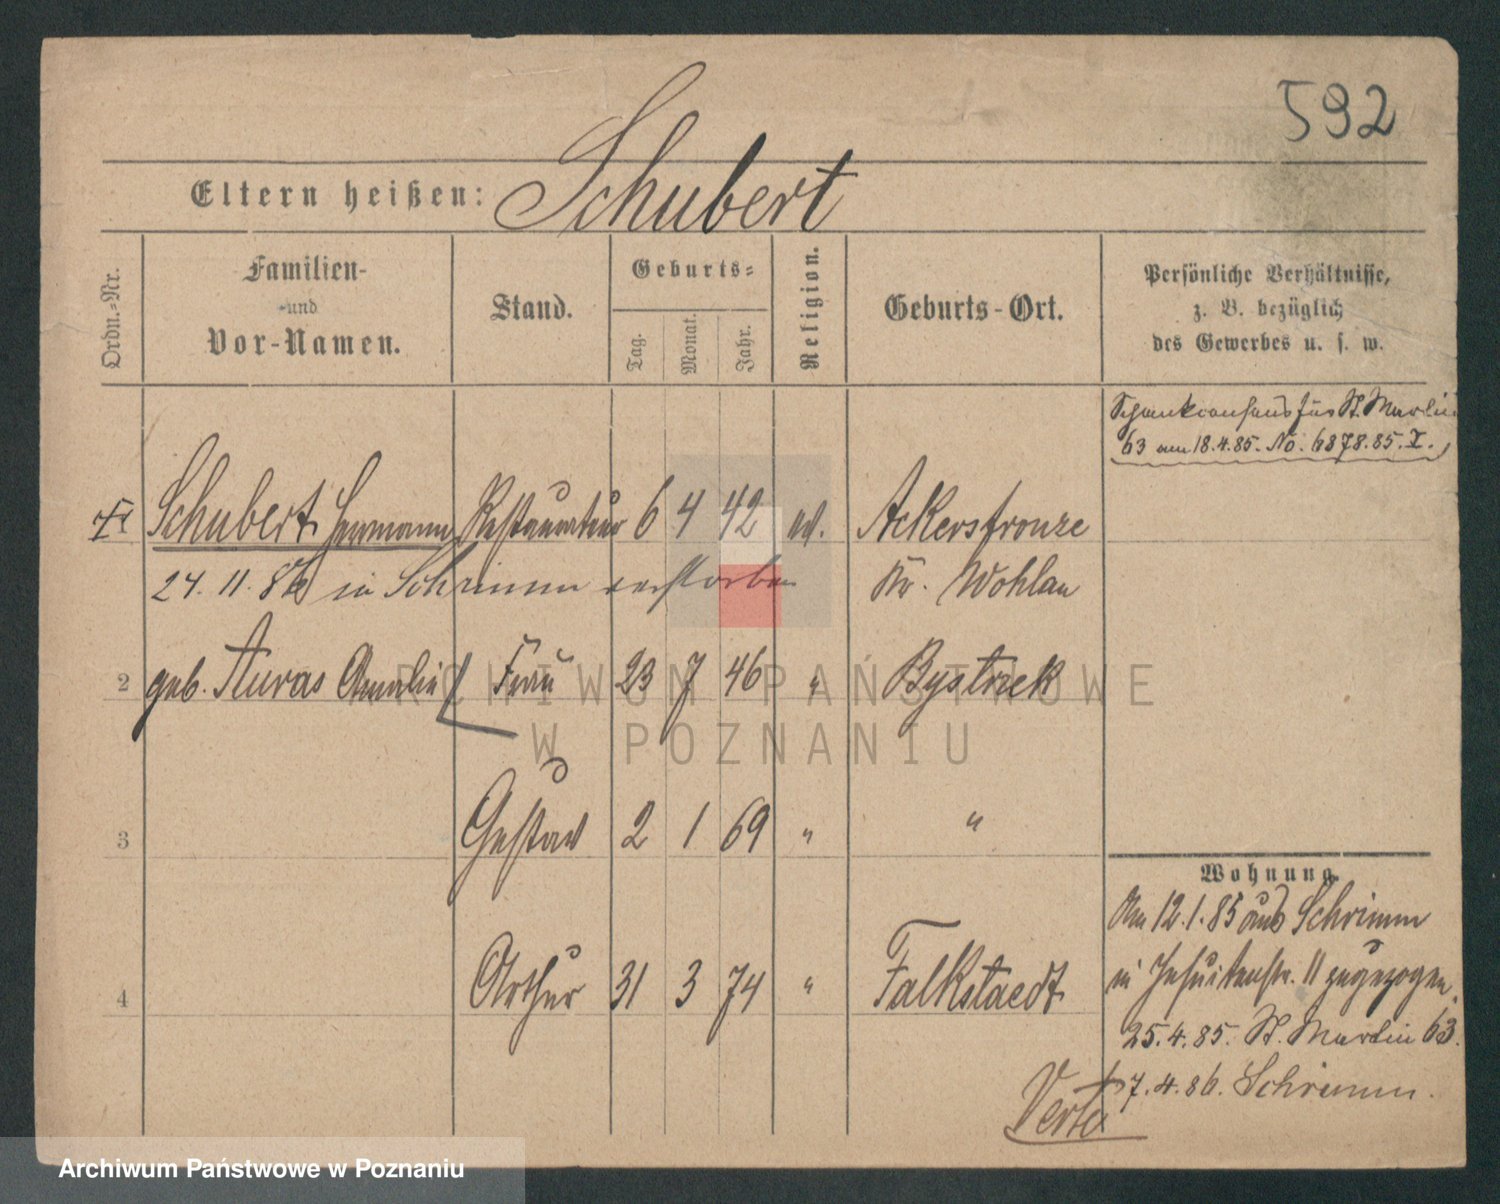 592
Eltern heißen: Schubert
Ordn.-Nr.
Familien-
und
Vor-Namen.
Stand.
Geburts-
Tag.
Monat.
Jahr.
Religion.
Geburts-Ort.
Persönliche Verhältnisse,
z. B. bezüglich
des Gewerbes u. s. w.
Schankconsens für St. Martin
63 am 18.4.85. No. 6878.85. I.
1 Schubert Hermann Restaurateur 6 4 42 ev. Ackersfronze
24. 11. 86 in Schrimm verstorben Kr. Wohlau
2 geb. Auras Amalie Frau 23 7 46 " Bystrzek
3 Gustav 2 1 69 " "
4 Arthur 31 3 74 " Falkstaedt
Wohnung.
Am 12.1.85 aus Schrimm
in Jesuitenstr. 11 zugezogen.
25.4.85. St. Martin 63.
7.4.86. Schrimm.
Verte
ARCHIWUM PAŃSTWOWE
W POZNANIU
Archiwum Państwowe w Poznaniu